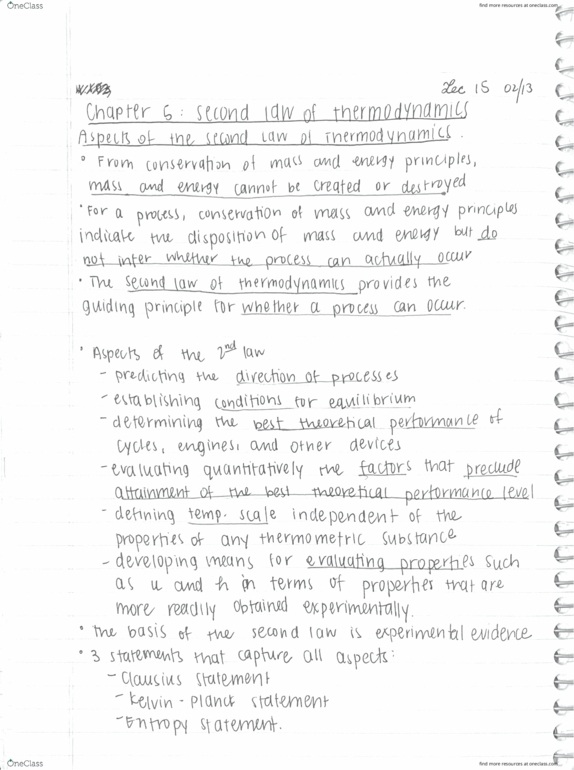 OneClass
find more resources at oneclass.com
Lec 15 02/13
Chapter 5: second law of thermodynamics
Aspects of the second law of Thermodynamics.
° From conservation of mass and energy principles,
mass and energy cannot be created or destroyed
• For a process, conservation of mass and energy principles
indicate the disposition of mass and energy but do
not infer whether the process can actually occur
• The second law of thermodynamics provides the
guiding principle for whether a process can occur.
• Aspects of the 2nd law
- predicting the direction of processes
- establishing conditions for equilibrium
- determining the best theoretical performance of
cycles, engines, and other devices
- evaluating quantitatively the factors that preclude
attainment of the best theoretical performance level
- defining temp. scale independent of the
properties of any thermometric substance
- developing means for evaluating properties such
as u and h in terms of properties that are
more readily obtained experimentally.
• The basis of the second law is experimental evidence
• 3 statements that capture all aspects:
- Clausius statement
- Kelvin-Planck statement
- Entropy statement.
OneClass
find more resources at oneclass.com